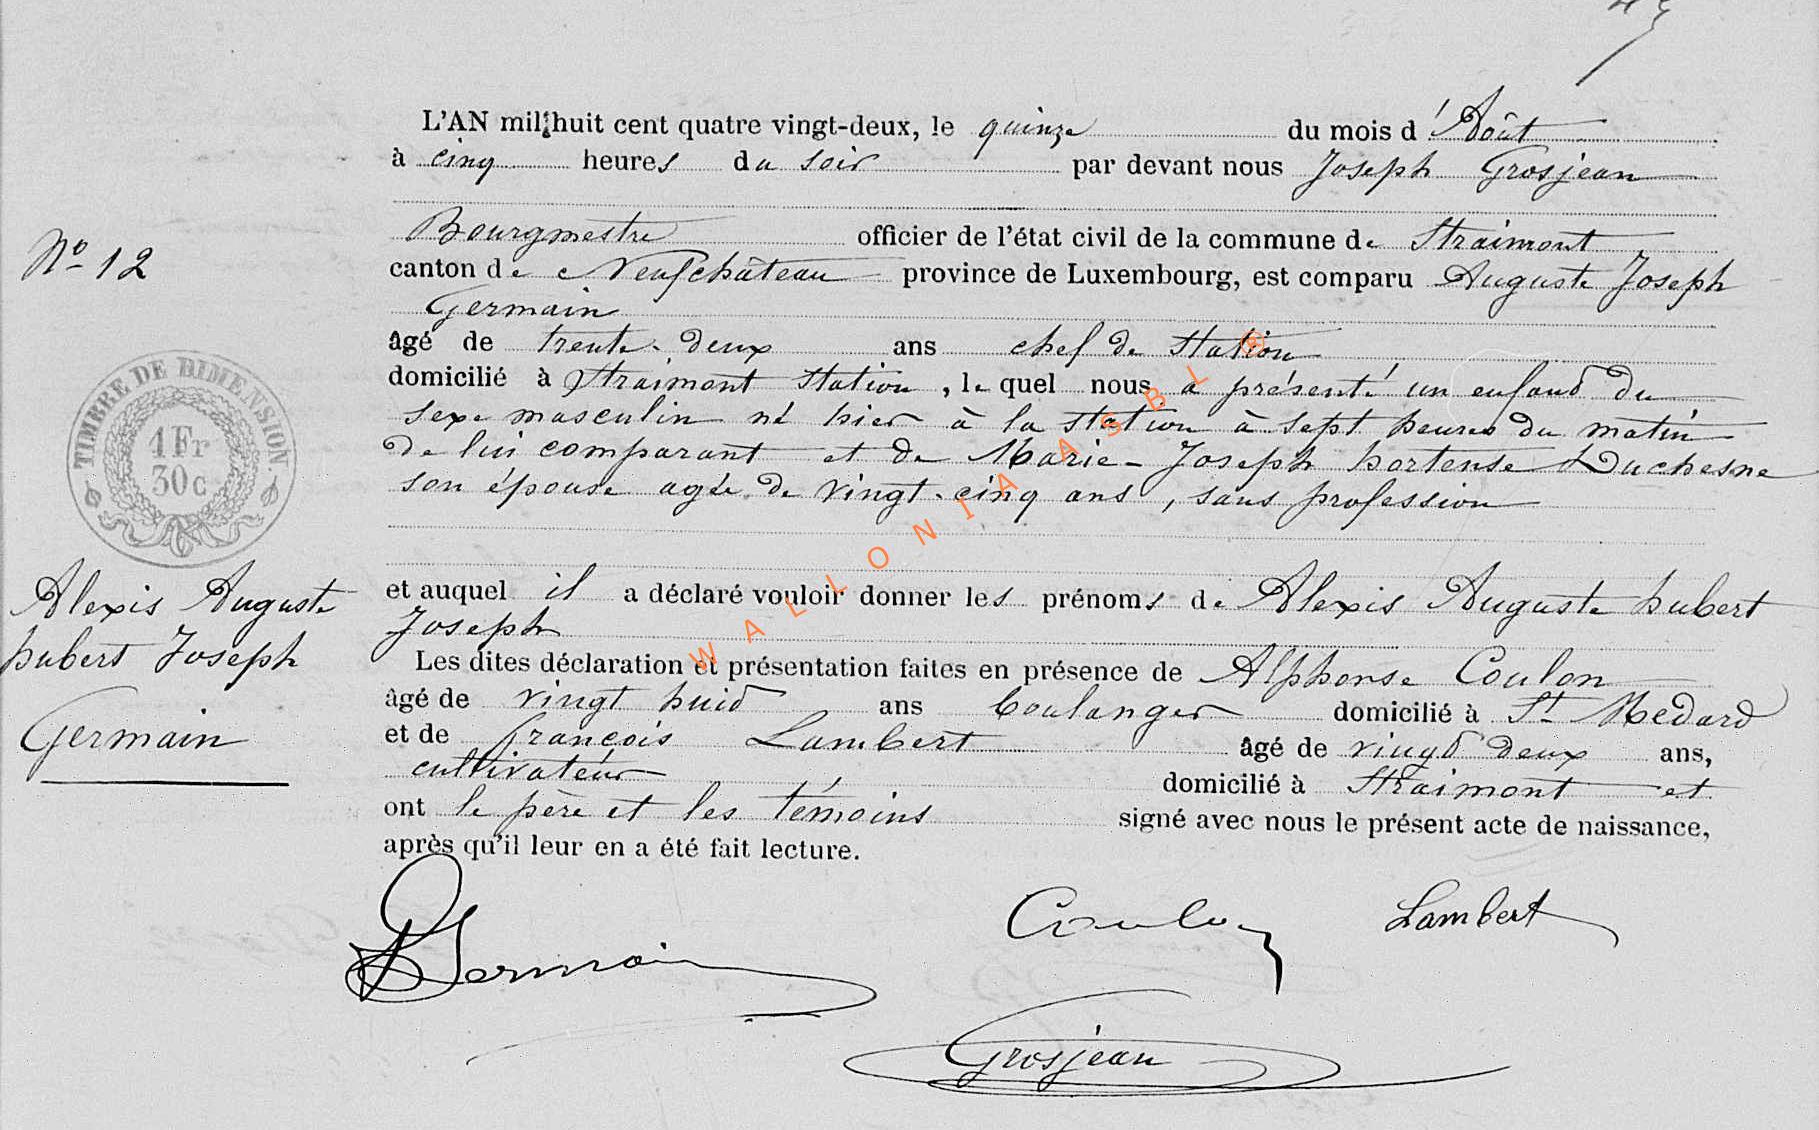 L'AN mil huit cent quatre vingt-deux, le quinze du mois d'Août
à cinq heures du soir par devant nous Joseph Grosjean
Bourgmestre officier de l'état civil de la commune de Straimont
N° 12
canton de Neufchâteau province de Luxembourg, est comparu Auguste Joseph
Germain
âgé de trente-deux ans chef de station
domicilié à Straimont station, lequel nous a présenté un enfant du
sexe masculin né hier à la station à sept heures du matin
de lui comparant et de Marie-Joseph hortense Duchesne
son épouse agée de vingt-cinq ans, sans profession
TIMBRE DE DIMENSION.
1 Fr
30 c
et auquel il a déclaré vouloir donner les prénoms de Alexis Auguste hubert
Joseph
Alexis Auguste
hubert Joseph
Germain
Les dites déclaration et présentation faites en présence de Alphonse Coulon
âgé de vingt huit ans boulanger domicilié à St Medard
et de françois Lambert âgé de vingt deux ans,
cultivateur domicilié à Straimont et
ont le père et les témoins signé avec nous le présent acte de naissance,
après qu'il leur en a été fait lecture.
Germain
Coulon
Lambert
Grosjean
WALLONIA ASBL ®